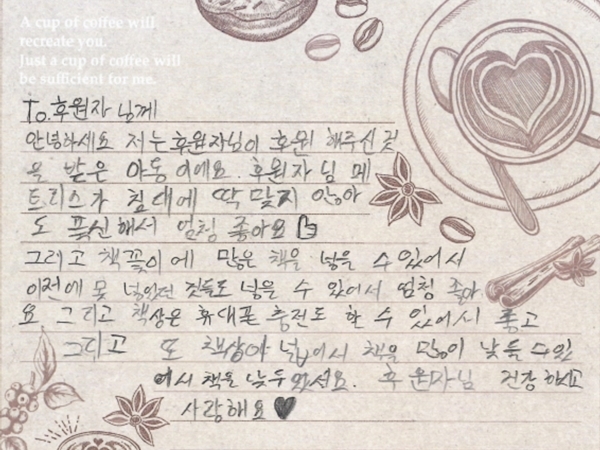 A cup of coffee will
recreate you.
Just a cup of coffee will
be sufficient for me.
To. 후원자 님께
안녕하세요 저는 후원자님이 후원 해주신 곳
을 받은 아동 이에요. 후원자 님 메
트리스가 침대에 딱 맞지 않아
도 푹신해서 엄청 좋아요
그리고 책꽂이에 많은 책을 넣을 수 있어서
이전에 못 넣었던 것들도 넣을 수 있어서 엄청 좋아
요 그리고 책상은 휴대폰 충전도 할 수 있어서 좋고
그리고 또 책상이 넓어서 책을 많이 놓을 수 있
어서 책을 후원자님 건강 하시고
사랑해요♥